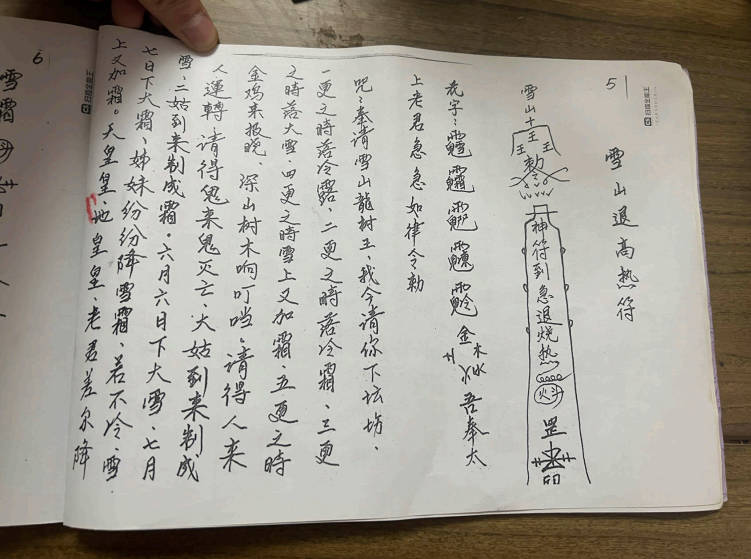 5
雪山退高热符
雪山十王
王王
敕令
神符到急退烧热
火斗
罡
印
花字：
金木水火
吾奉太
上老君急急如律令勅
咒：奉请雪山龍树王、我今请你下坛坊、
一更之時落冷露、二更之時落冷霜、三更
之時落大雪、四更之時雪上又加霜、五更之時
金鸡来报晓、深山树木响叮噹。请得人来
人運轉、请得鬼来鬼灭亡、大姑到来制成
雪、二姑到来制成霜。六月六日下大雪、七月
七日下大霜、姊妹纷纷降雪霜、若不冷、雪
上又加霜。天皇皇、地皇皇、老君差尔降
6
雪霜